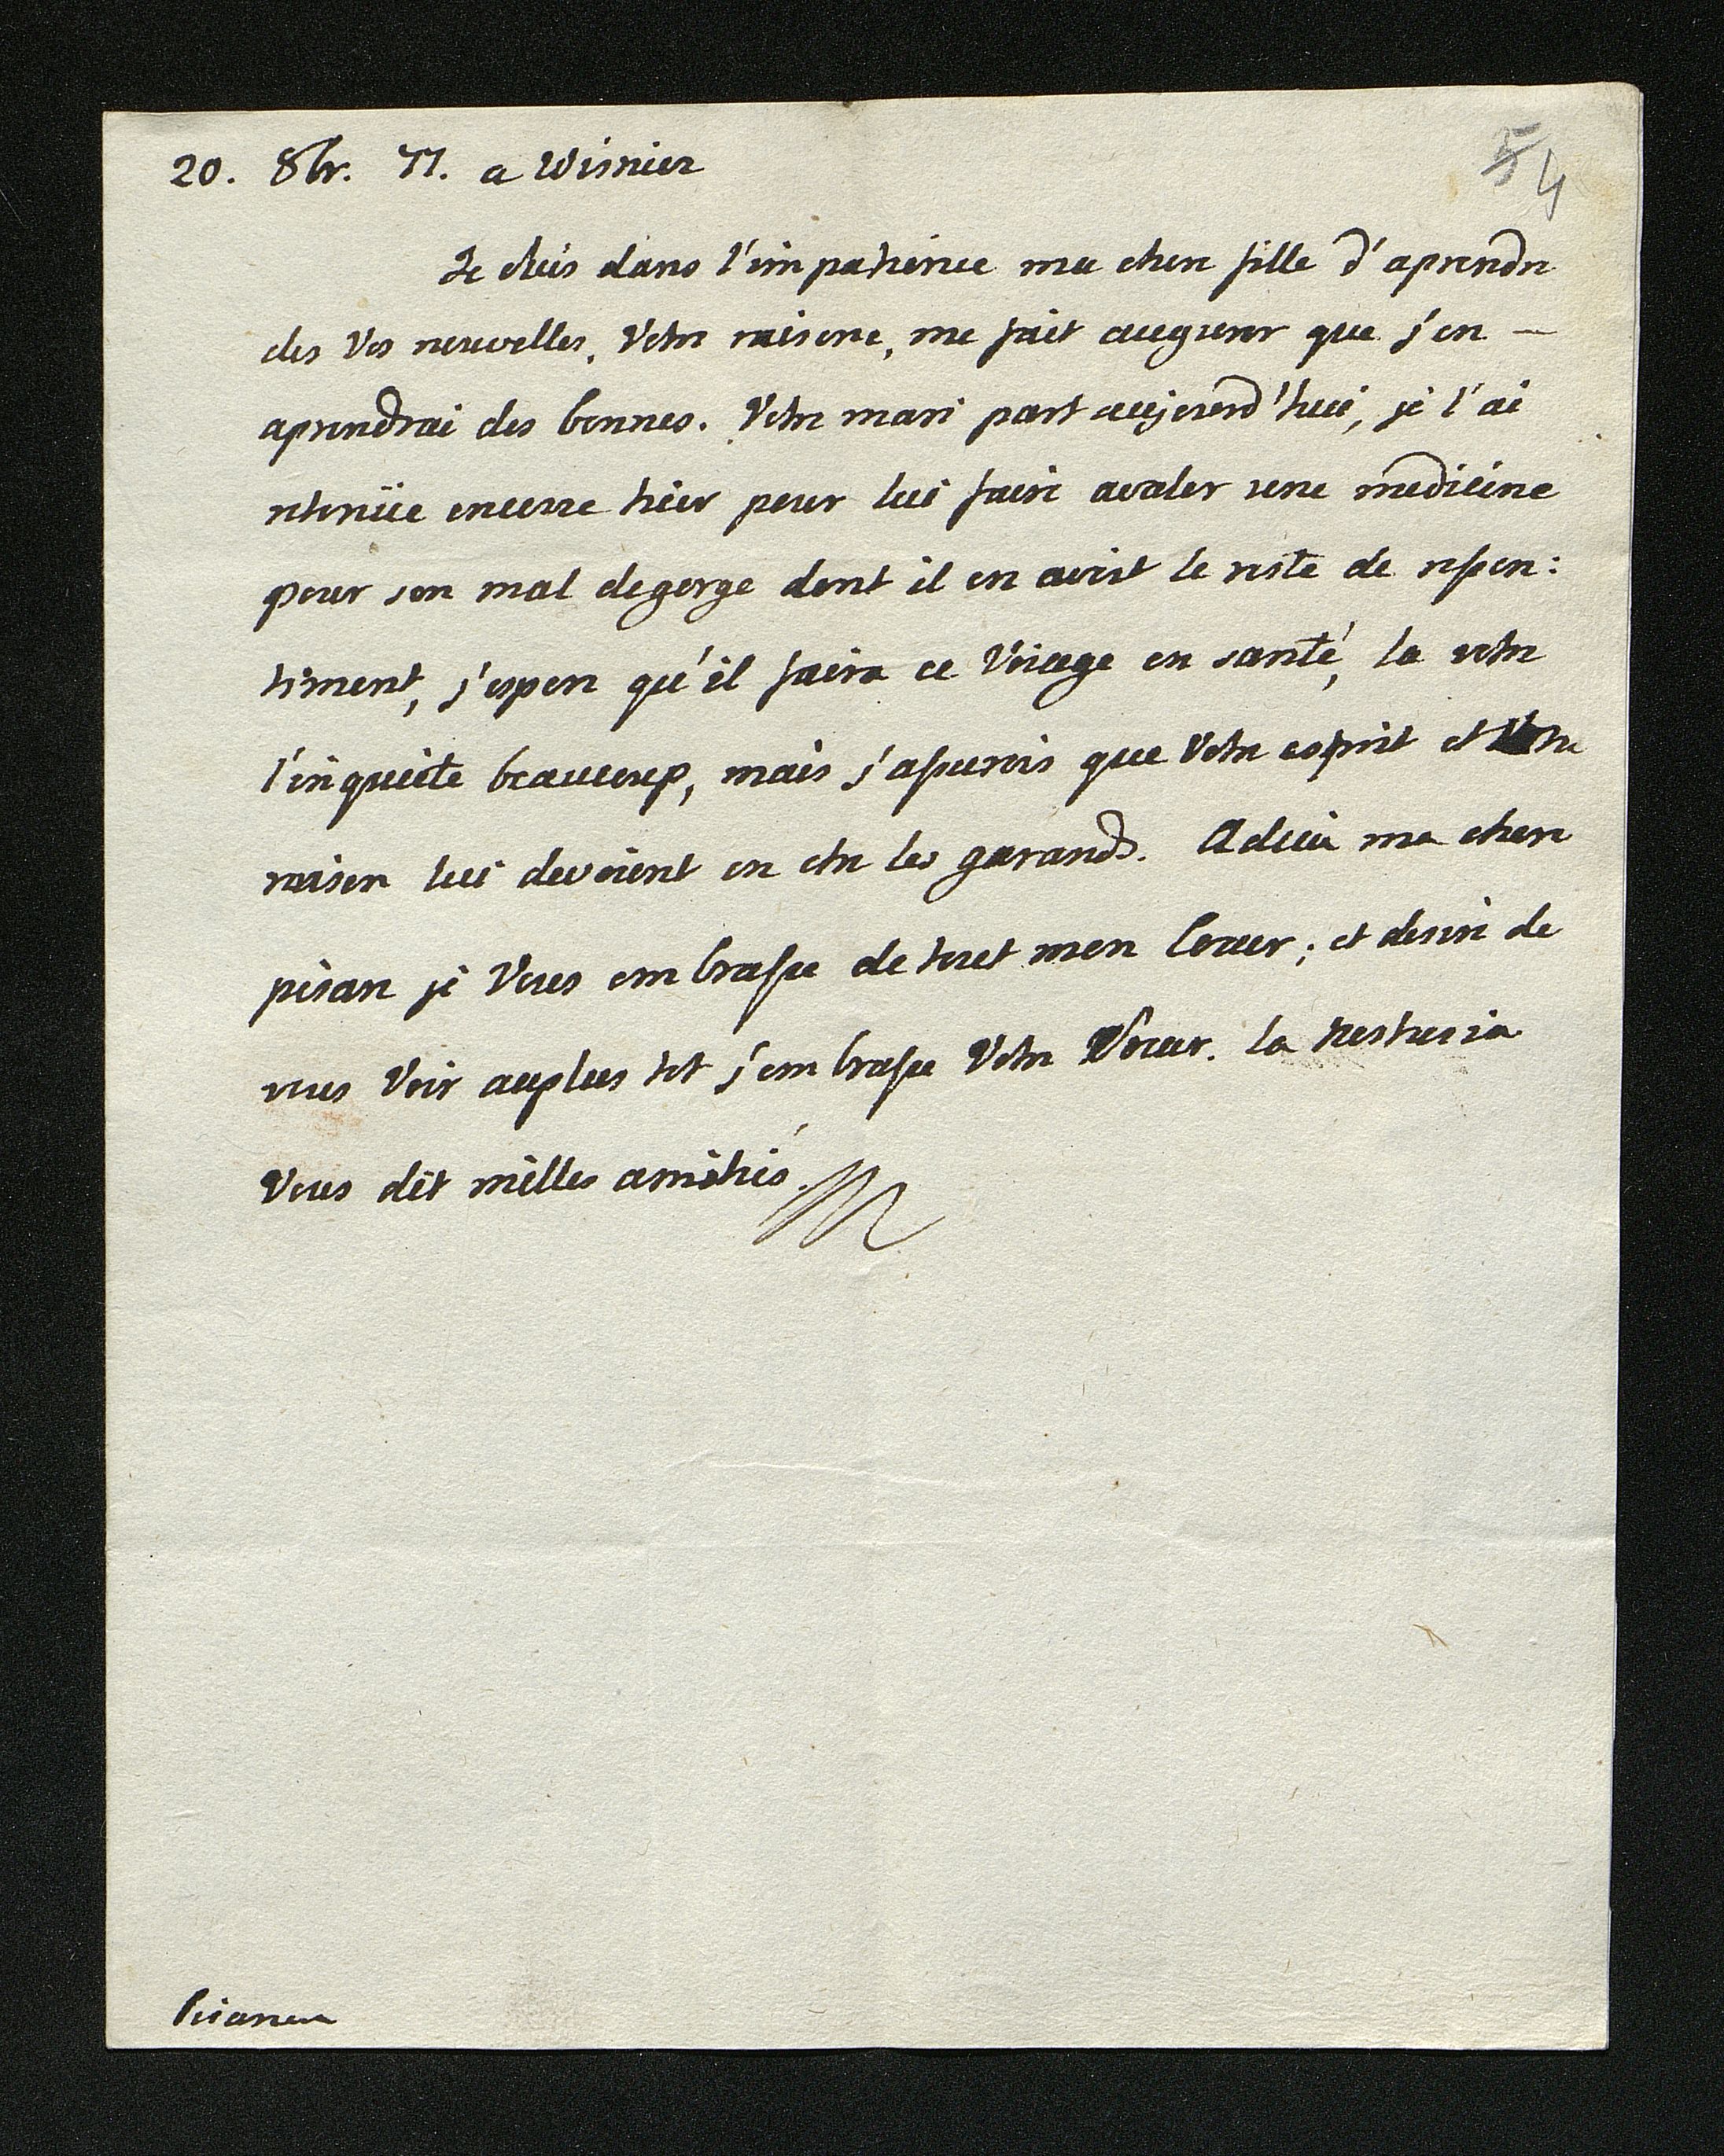 20. 8br. 77. a Wisnicz
54
Je suis dans l'impatience ma chere fille d'aprendre
des Vos nouvelles, Votre raisone, me fait augurer que j'en —
aprendrai des bonnes. Votre mari part aujourd'hui, je l'ai
retenüe encorre hier pour lui faire avaler une medicine
pour son mal degorge dont il en avoit le reste de ressen:
timent, j'espere qu'il faira ce Voiage en santé, la votre
l'inquiete beaucoup, mais j'assurois que Votre esprit et Votre
raison lui devoient en etre les garands. Adieu ma chere
pisan je Vous embrasse de tout mon Coeur; et desire de
vous Voir auplus tot j'embrasse Votre Soeur. la
Vous dit milles amitiés.
M